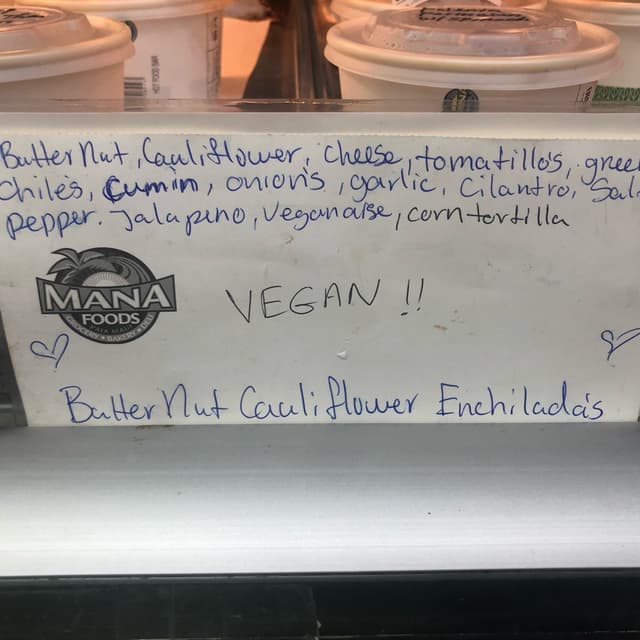 HOT FOOD BAR
Butter Nut, Cauliflower, cheese, tomatillo's, green
Chile's, Cumin, onion's, garlic, Cilantro, Sal
pepper. Jalapeno, Veganaise, corn tortilla
MANA
FOODS
PAIA MAUI
GROCERY • BAKERY • DELI
VEGAN !!
Butter Nut Cauliflower Enchilada's